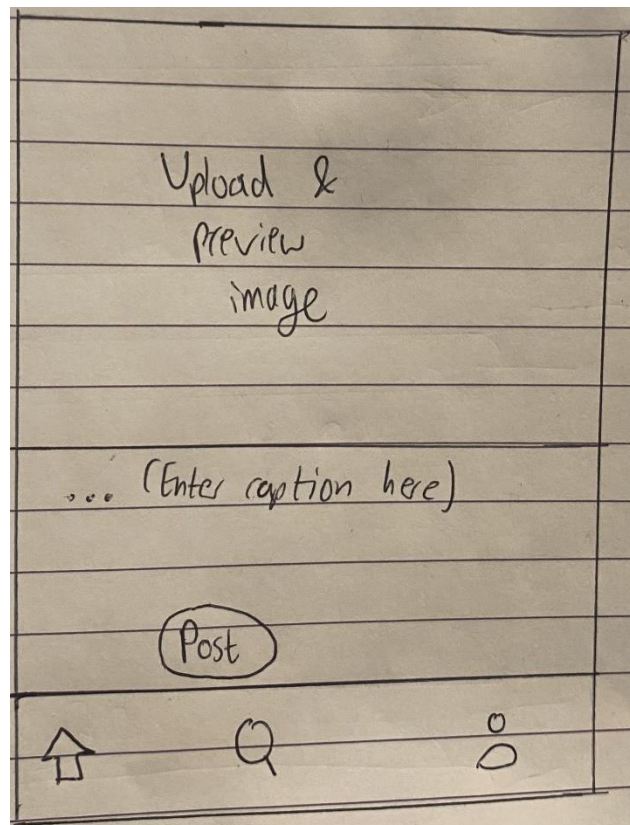 Upload &
preview
image
... (Enter caption here)
Post